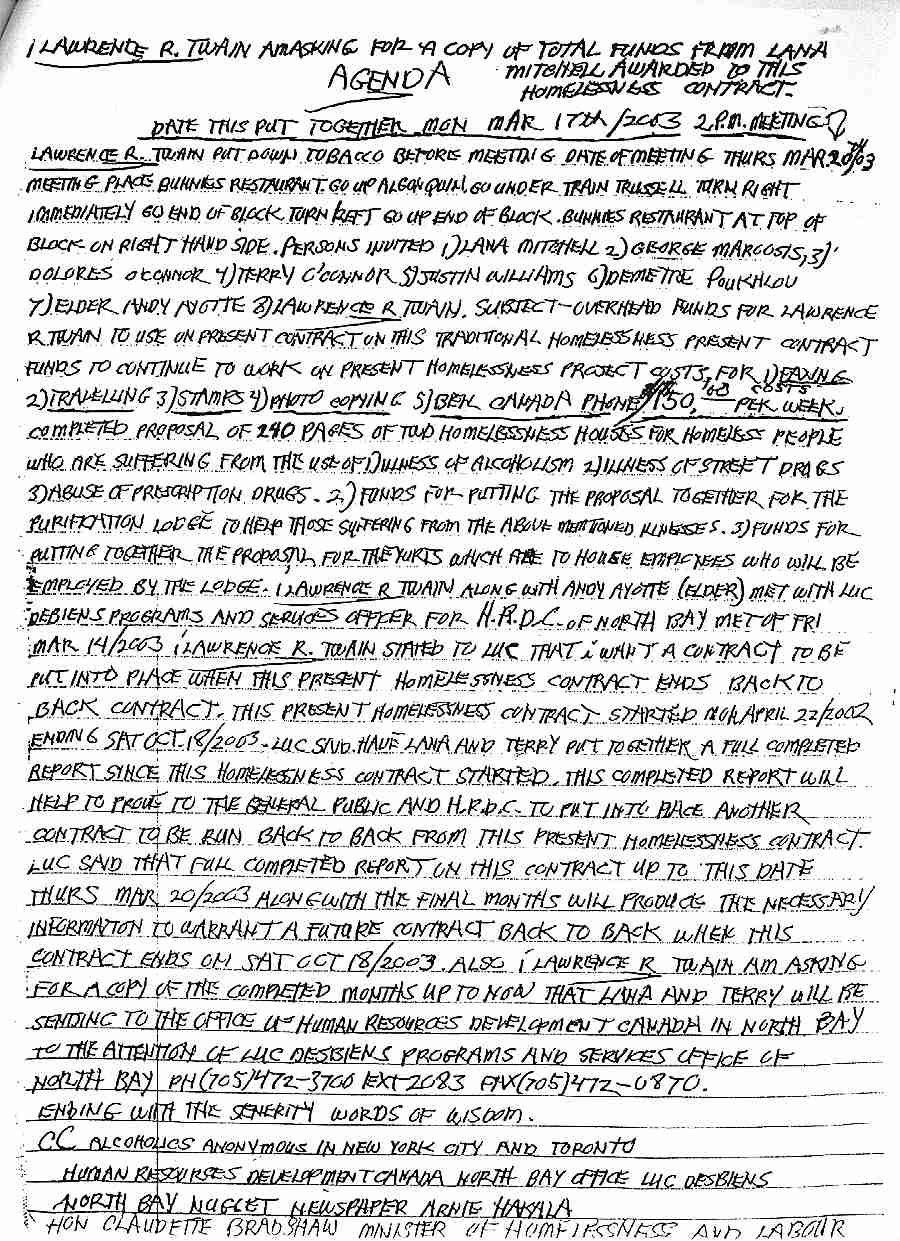 i LAWRENCE R. TWAIN AM ASKING FOR A COPY OF TOTAL FUNDS FROM LANA
MITCHELL AWARDED TO THIS
AGENDA
HOMELESSNESS CONTRACT.
DATE THIS PUT TOGETHER MON MAR 17th/2003 2P.M. MEETING
LAWRENCE R. TWAIN PUT DOWN TOBACCO BEFORE MEETING DATE OF MEETING THURS MAR 20th/03
MEETING PLACE BUNNIES RESTAURANT. GO UP ALGONQUIN, GO UNDER TRAIN TRUSSELL TURN RIGHT
IMMEDIATELY GO END OF BLOCK TURN LEFT GO UP END OF BLOCK. BUNNIES RESTAURANT AT TOP OF
BLOCK ON RIGHT HAND SIDE. PERSONS INVITED 1) LANA MITCHELL 2) GEORGE MARCOSIS, 3)
DOLORES O'CONNOR 4) TERRY O'CONNOR 5) JUSTIN WILLIAMS 6) DEMETRE POUKHLOU
7) ELDER ANDY AYOTTE 8) LAWRENCE R TWAIN. SUBJECT-OVERHEAD FUNDS FOR LAWRENCE
R TWAIN TO USE ON PRESENT CONTRACT ON THIS TRADITIONAL HOMELESSNESS PRESENT CONTRACT
FUNDS TO CONTINUE TO WORK ON PRESENT HOMELESSNESS PROJECT COSTS, FOR 1) FAXING
2) TRAVELLING 3) STAMPS 4) PHOTO COPYING 5) BELL CANADA PHONE 150.00 COSTS PER WEEK.
COMPLETED PROPOSAL OF 240 PAGES OF TWO HOMELESSNESS HOUSES FOR HOMELESS PEOPLE
WHO ARE SUFFERING FROM THE USE OF 1) ILLNESS OF ALCOHOLISM 2) ILLNESS OF STREET DRUGS
3) ABUSE OF PRESCRIPTION DRUGS. 2,) FUNDS FOR PUTTING THE PROPOSAL TOGETHER FOR THE
PURIFICATION LODGE TO HELP THOSE SUFFERING FROM THE ABOVE MENTIONED ILLNESSES. 3) FUNDS FOR
PUTTING TOGETHER THE PROPOSAL FOR THE YURTS WHICH ARE TO HOUSE EMPLOYEES WHO WILL BE
EMPLOYED BY THE LODGE. i LAWRENCE R TWAIN ALONG WITH ANDY AYOTTE (ELDER) MET WITH LUC
DEBIENS PROGRAMS AND SERVICES OFFICER FOR H.R.D.C. OF NORTH BAY MET OF FRI
MAR 14/2003 i LAWRENCE R. TWAIN STATED TO LUC THAT i WANT A CONTRACT TO BE
PUT INTO PLACE WHEN THIS PRESENT HOMELESSNESS CONTRACT ENDS BACK TO
BACK CONTRACT. THIS PRESENT HOMELESSNESS CONTRACT STARTED MON APRIL 22/2002
ENDING SAT OCT 18/2003. LUC SAID. HAVE LANA AND TERRY PUT TOGETHER A FULL COMPLETED
REPORT SINCE THIS HOMELESSNESS CONTRACT STARTED. THIS COMPLETED REPORT WILL
HELP TO PROVE TO THE GENERAL PUBLIC AND H.R.D.C. TO PUT INTO PLACE ANOTHER
CONTRACT TO BE RUN BACK TO BACK FROM THIS PRESENT HOMELESSNESS CONTRACT.
LUC SAID THAT FULL COMPLETED REPORT ON THIS CONTRACT UP TO THIS DATE
THURS MAR 20/2003 ALONG WITH THE FINAL MONTHS WILL PRODUCE THE NECESSARY
INFORMATION TO WARRANT A FUTURE CONTRACT BACK TO BACK WHEN THIS
CONTRACT ENDS ON SAT OCT 18/2003. ALSO i LAWRENCE R TWAIN AM ASKING
FOR A COPY OF THE COMPLETED MONTHS UP TO NOW THAT LANA AND TERRY WILL BE
SENDING TO THE OFFICE OF HUMAN RESOURCES DEVELOPMENT CANADA IN NORTH BAY
TO THE ATTENTION OF LUC DESBIENS PROGRAMS AND SERVICES OFFICE OF
NORTH BAY PH (705) 472-3700 EXT 2083 FAX (705) 472-0870.
ENDING WITH THE SENERITY WORDS OF WISDOM.
CC ALCOHOLICS ANONYMOUS IN NEW YORK CITY AND TORONTO
HUMAN RESOURSES DEVELOPMENT CANADA NORTH BAY OFFICE LUC DESBIENS
NORTH BAY NUGGET NEWSPAPER ARNIE HAKALA
HON CLAUDETTE BRADSHAW MINISTER OF HOMELESSNESS AND LABOUR